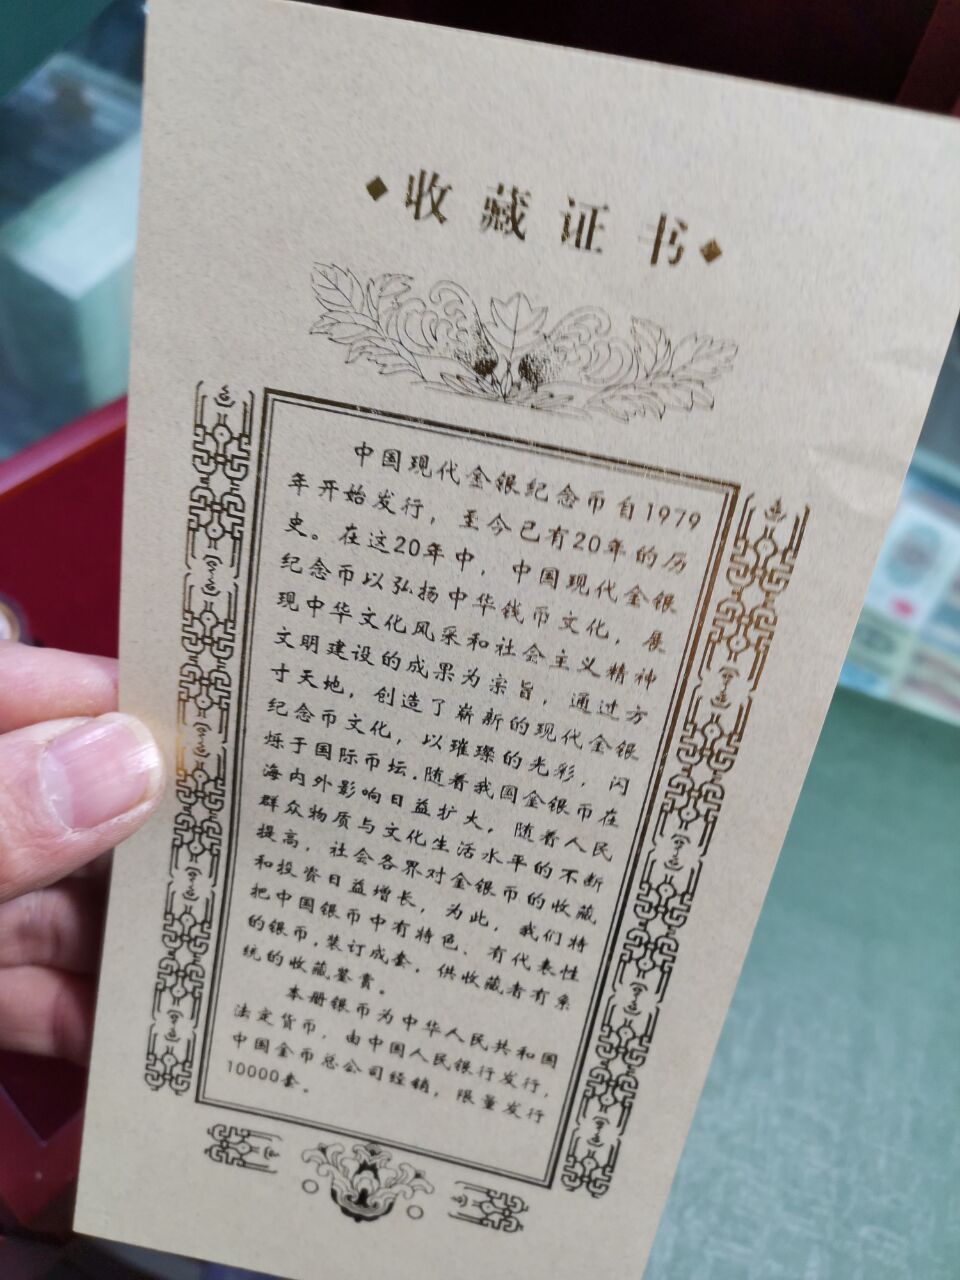 收藏证书
中国现代金银纪念币自1979
年开始发行，至今已有20年的历
史。在这20年中，中国现代金银
纪念币以弘扬中华钱币文化，展
现中华文化风采和社会主义精神
文明建设的成果为宗旨，通过方
寸天地，创造了崭新的现代金银
纪念币文化，以璀璨的光彩，闪
烁于国际币坛.随着我国金银币在
海内外影响日益扩大，随着人民
群众物质与文化生活水平的不断
提高，社会各界对金银币的收藏
和投资日益增长，为此，我们特
把中国银币中有特色、有代表性
的银币,装订成套，供收藏者有系
统的收藏鉴赏。
本册银币为中华人民共和国
法定货币，由中国人民银行发行，
中国金币总公司经销，限量发行
10000套。